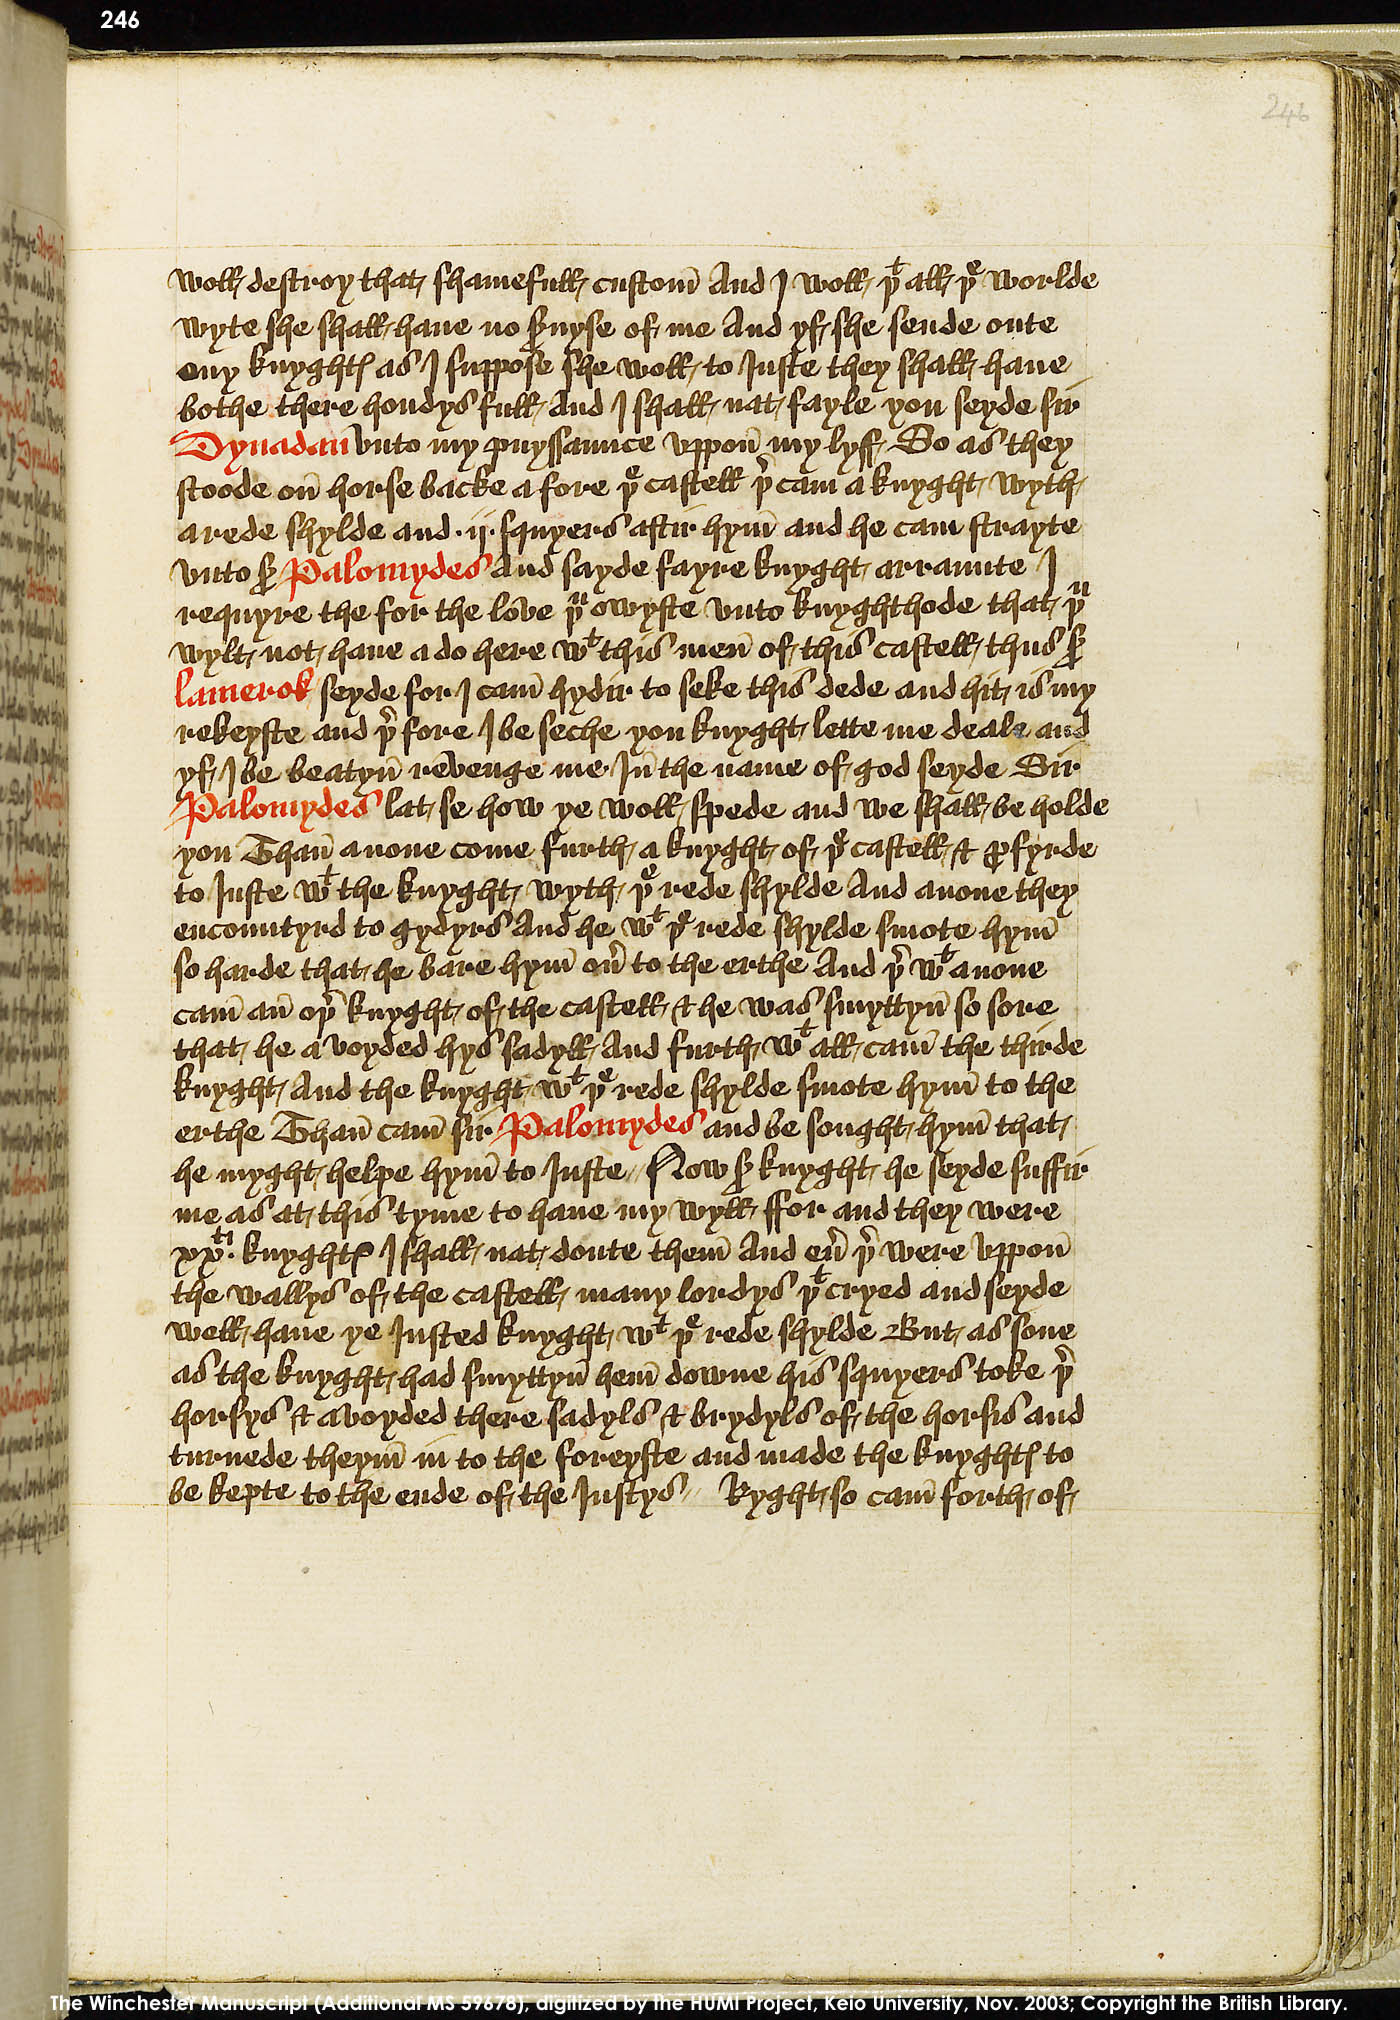 246
246
woll destroy that shamefull custom̄ And I woll þͭ all þͤ worlde
wyte she shall haue no ẜuyse of me And yf she sende oute
ony knyghtꝭ as I suppose she woll to Juste they shall haue
bothe there hondys full And I shall nat fayle you seyde sir
Dynadan vnto my puyssaunce vppon̄ my lyff So as they
stoode on̄ horse backe a fore þͤ castell þ̉ cam a knyght wyth
a rede shylde and .ij. squyers aftir hym̄ and he cam strayte
vnto ẜ Palomydes And sayde fayre knyght arraunte I
requyre the for the love þᵘ owyste vnto knyghthode that þᵘ
wylt not haue a do here wͭ this men̄ of this castell thus ẜ
lamerok seyde for I cam̄ hydir to seke this dede and hit is my
rekeyste and þ̉ fore I be seche you knyght lette me deale and
yf I be beatyn̄ revenge me In̄ the name of god seyde Sir
Palomydes lat se how ye woll spede and we shall be holde
you Than̄ anone come furth a knyght of þͤ castell & ꝓfyrde
to Juste wͭ the knyght wyth þͤ rede shylde And anone they
encountyrd to gydyrs And he wͭ þͤ rede shylde smote hym̄
so harde that he bare hym̄ ou̓ to the erthe And þ̉ wͭ anone
cam̄ an̄ oþ̉ knyght of the castell & he was smyttyn̄ so sore
that he a voyded hys sadyll And furth wͭ all cam̄ the thirde
knyght And the knyght wͭ þͤ rede shylde smote hym̄ to the
erthe Than̄ cam̄ sir Palomydes and be sought hym̄ that
he myght helpe hym̄ to Juste // Now ẜ knyght he seyde suffir
me as at this tyme to haue my wyll ffor and they were
xxͭⁱ. knyghtꝭ I shall nat doute them̄ And eu̓ þ̉ were vppon̄
the wallys of the castell many lordys þͭ cryed and seyde
well haue ye Justed knyght wͭ þͤ rede shylde But as sone
as the knyght had smyttyn̄ hem̄ downe his squyers toke þ̉
horsys & avoyded there sadyls & brydyls of the horsis and
turnede theym̄ in to the foreyste and made the knyghtꝭ to
be kepte to the ende of the Justys // Ryght so cam̄ forth of
The Winchester Manuscript (Additional MS 59678), digitized by the HUMI Project, Keio University, Nov. 2003; Copyright the British Library.